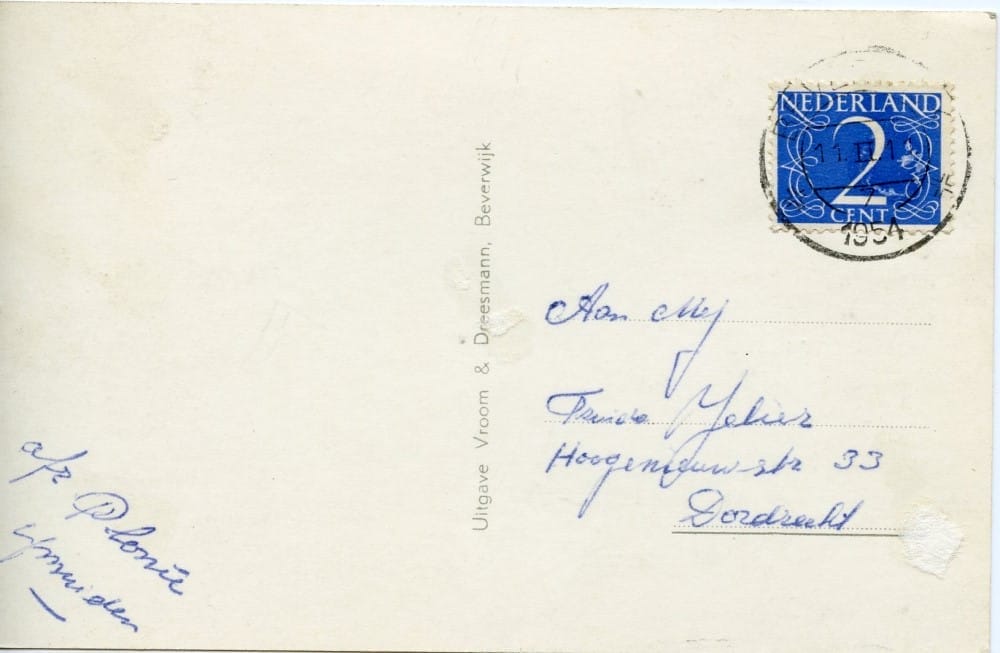 NEDERLAND
2
CENT
11.II.1
1954
Uitgave Vroom & Dreesmann, Beverwijk
Aan Mej
Truida
Hoogenieuwstr 33
Dordrecht
afz
P. Lonie
Ymuiden